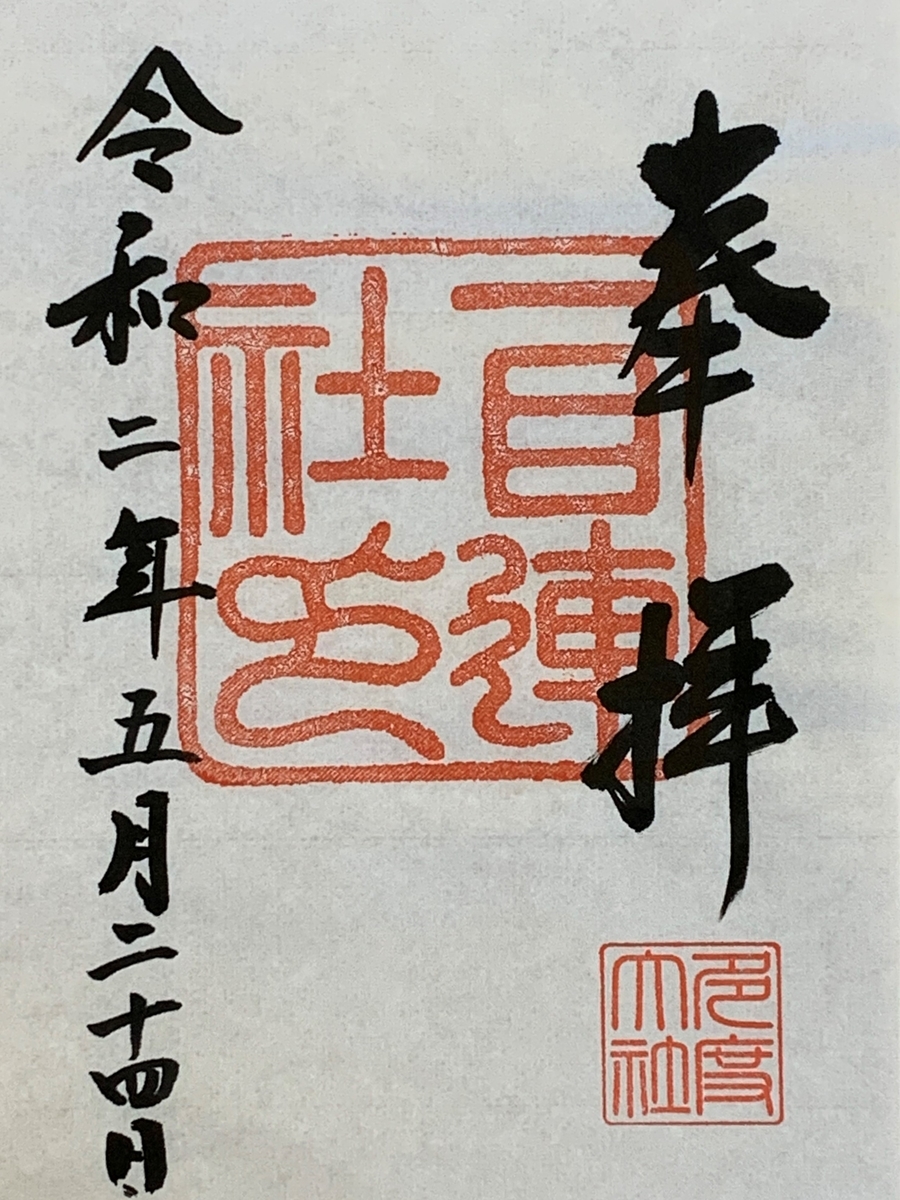 奉拝
一目連
社印
多度
大社
令和二年五月二十四日